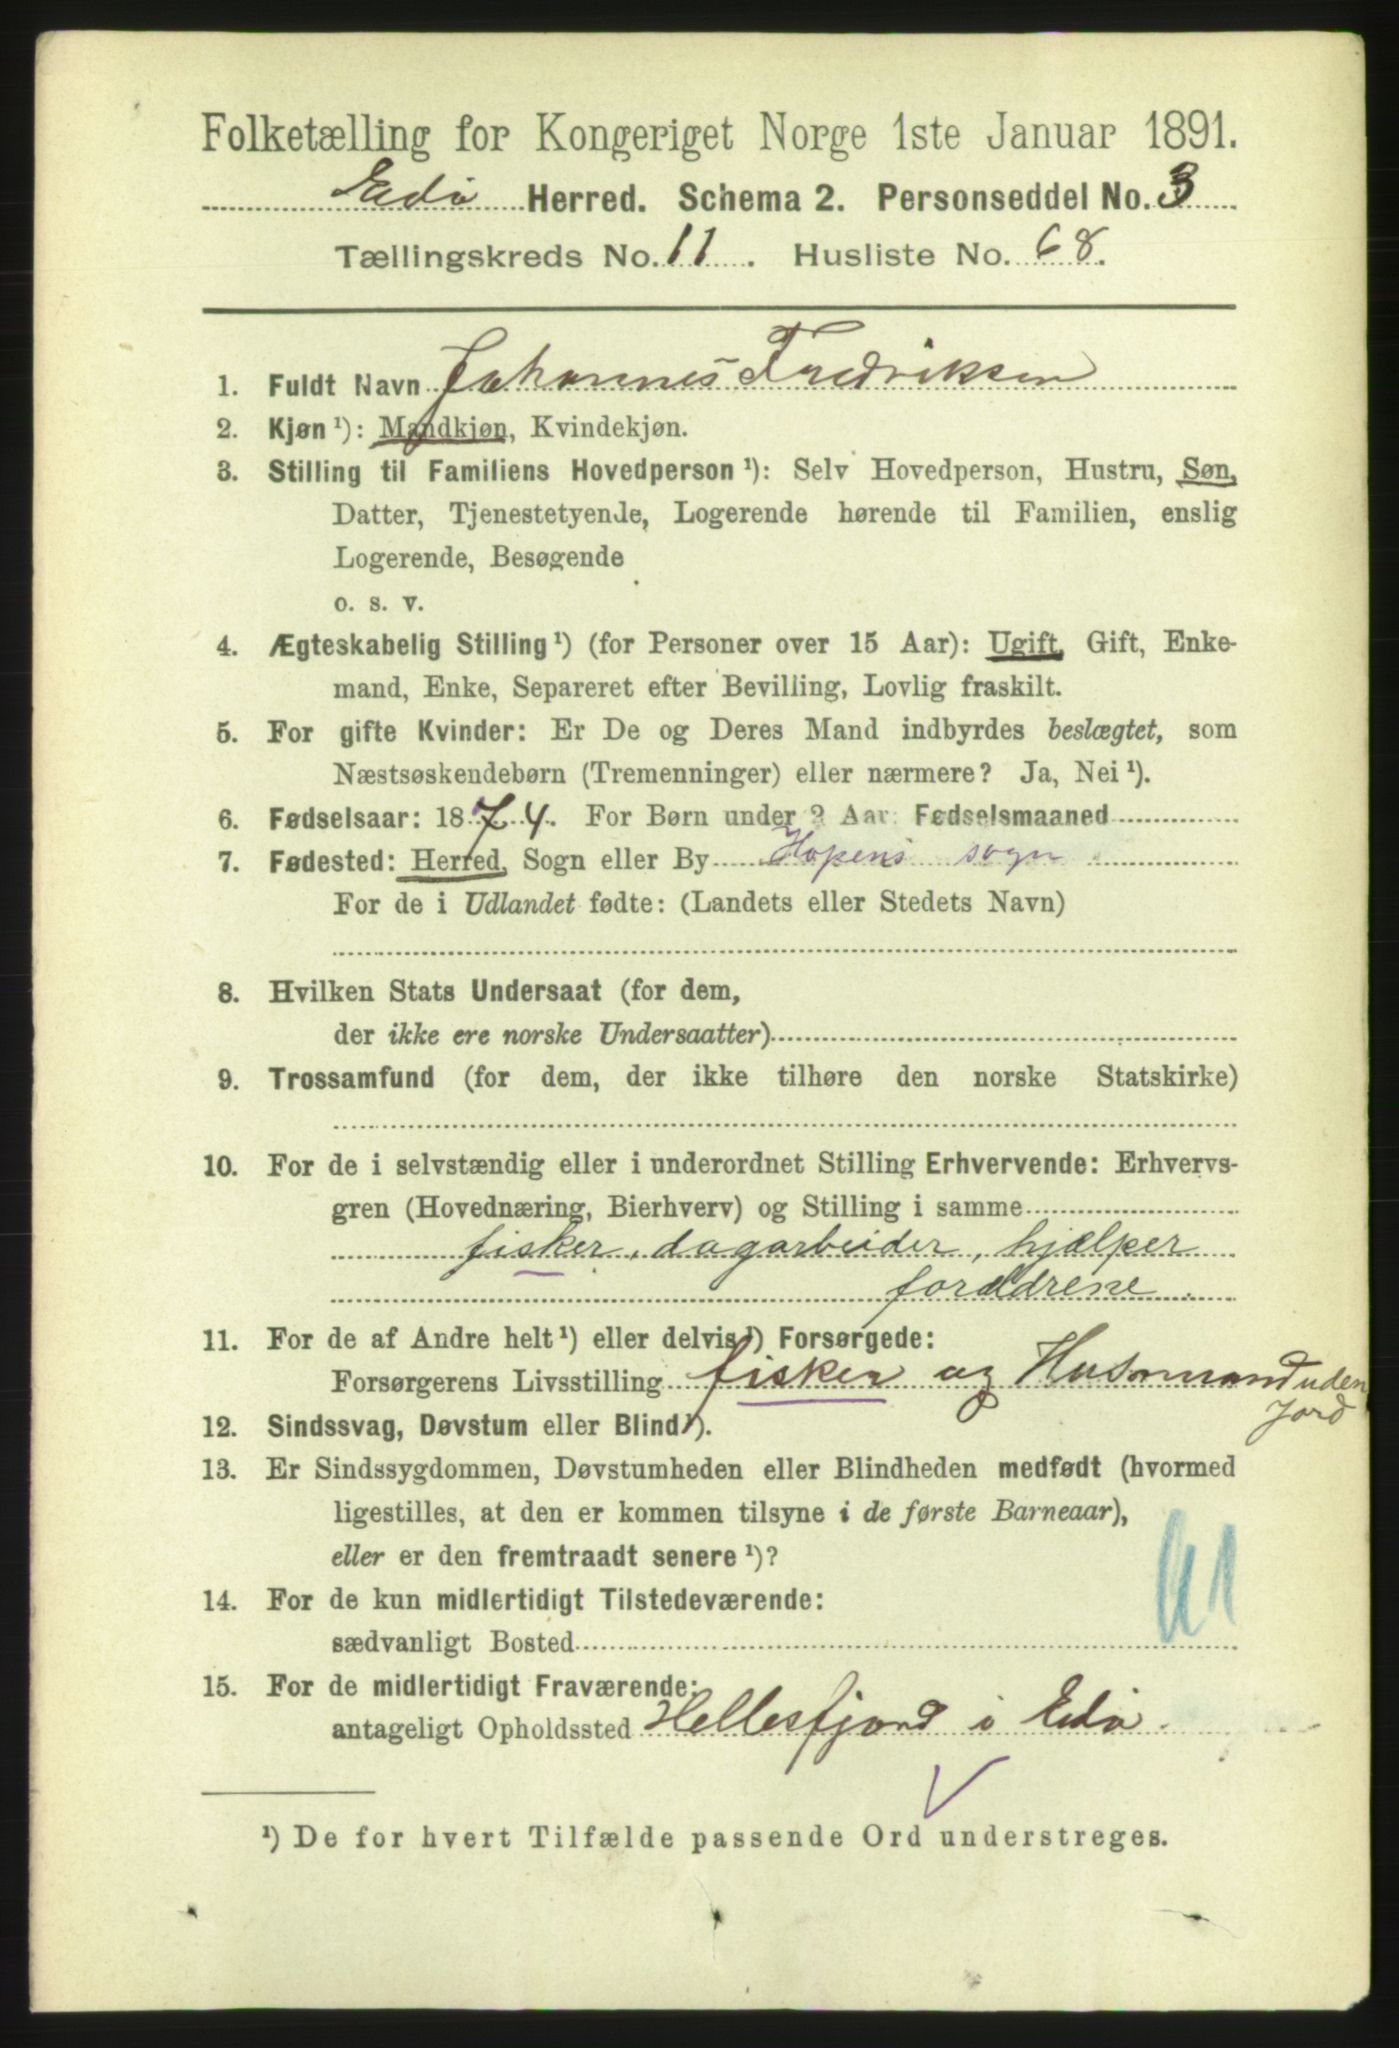 Folketælling for Kongeriget Norge 1ste Januar 1891.
Edø Herred. Schema 2. Personseddel No. 3
Tællingskreds No. 11. Husliste No. 68.
1. Fuldt Navn Johannes Fredriksen
2. Kjøn ¹): Mandkjøn, Kvindekjøn.
3. Stilling til Familiens Hovedperson ¹): Selv Hovedperson, Hustru, Søn,
Datter, Tjenestetyende, Logerende hørende til Familien, enslig
Logerende, Besøgende
o. s. v.
4. Ægteskabelig Stilling ¹) (for Personer over 15 Aar): Ugift, Gift, Enke-
mand, Enke, Separeret efter Bevilling, Lovlig fraskilt.
5. For gifte Kvinder: Er De og Deres Mand indbyrdes beslægtet, som
Næstsøskendebørn (Tremenninger) eller nærmere? Ja, Nei ¹).
6. Fødselsaar: 1874. For Børn under 2 Aar: Fødselsmaaned
7. Fødested: Herred, Sogn eller By Hopens sogn
For de i Udlandet fødte: (Landets eller Stedets Navn)
8. Hvilken Stats Undersaat (for dem,
der ikke ere norske Undersaatter)
9. Trossamfund (for dem, der ikke tilhøre den norske Statskirke)
10. For de i selvstændig eller i underordnet Stilling Erhvervende: Erhvervs-
gren (Hovednæring, Bierhverv) og Stilling i samme
fisker, dagarbeider, hjælper
forældrene.
11. For de af Andre helt ¹) eller delvis ¹) Forsørgede:
Forsørgerens Livsstilling fisker og Husmand uden
Jord
12. Sindssvag, Døvstum eller Blind ¹).
13. Er Sindssygdommen, Døvstumheden eller Blindheden medfødt (hvormed
ligestilles, at den er kommen tilsyne i de første Barneaar),
eller er den fremtraadt senere ¹)?
14. For de kun midlertidigt Tilstedeværende:
sædvanligt Bosted
15. For de midlertidigt Fraværende:
antageligt Opholdssted Hellesfjord i Edø.
¹) De for hvert Tilfælde passende Ord understreges.